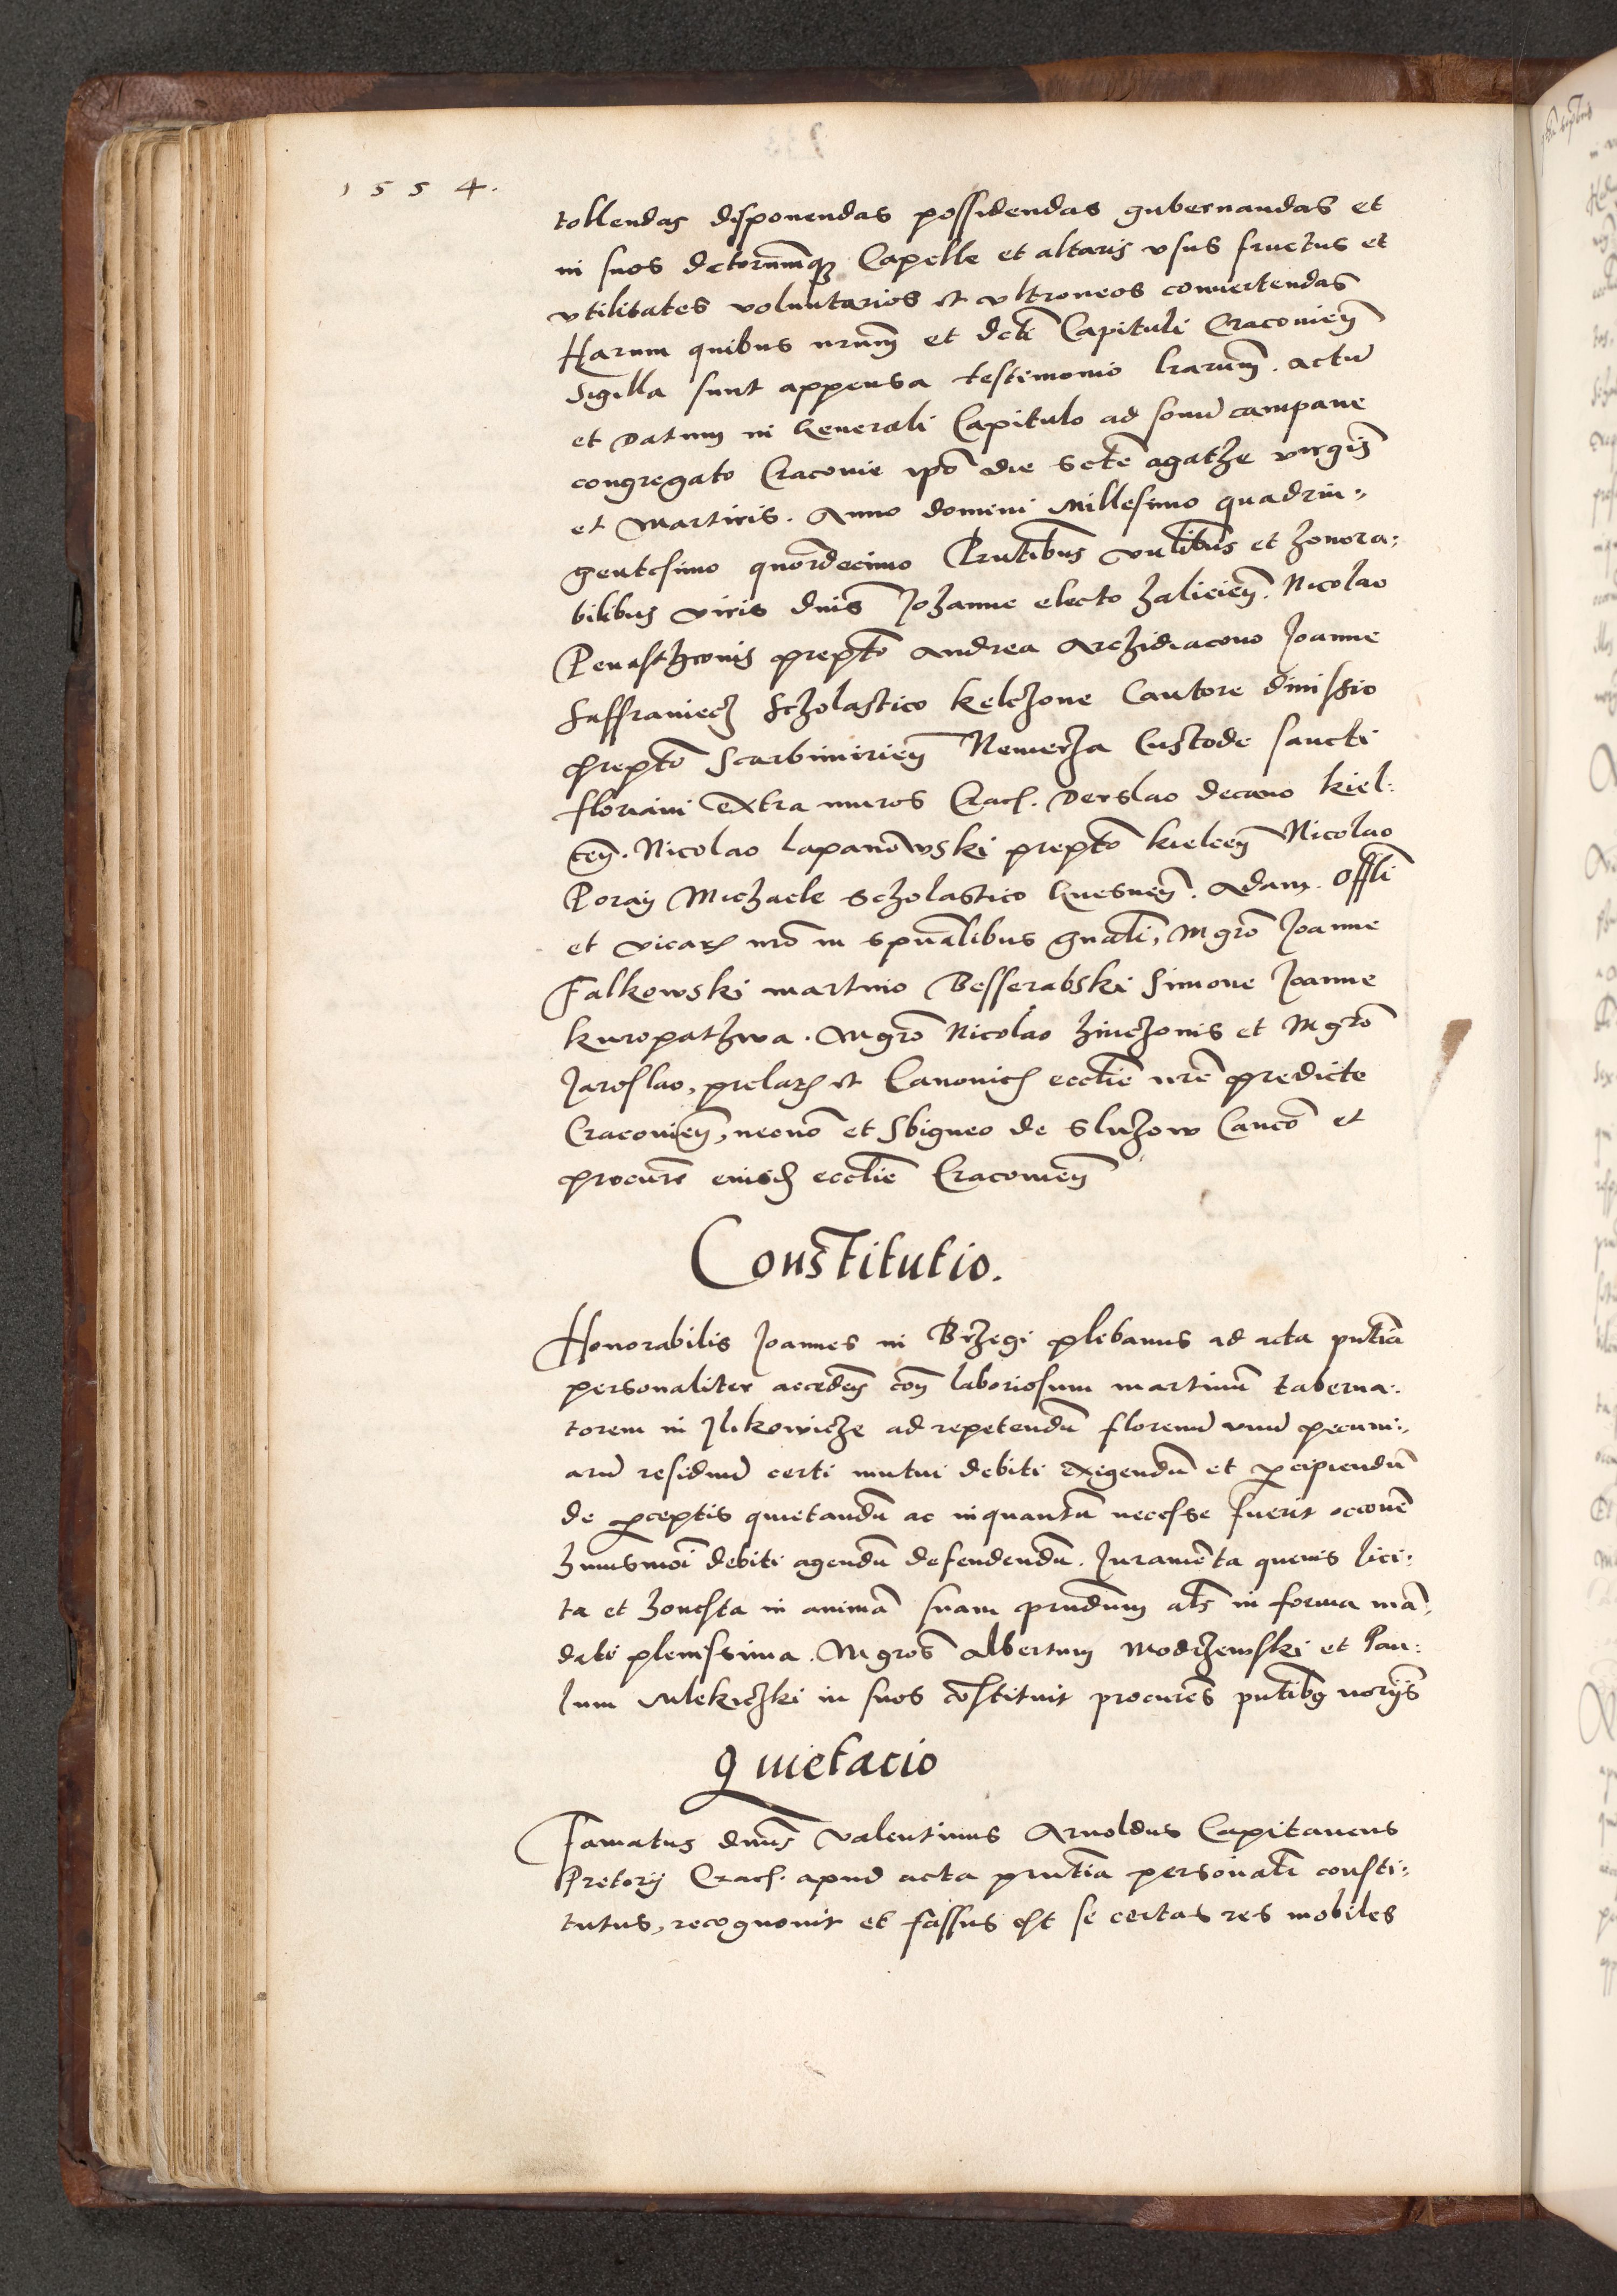 1554.
tollendas disponendas possidendas gubernandas et
in suos dctorumq3 Capelle et altaris vsus fructus et
vtilitates voluntarios et vltroneos convertendas
Harum quibus nrum et dcti Capituli Cracovien
Sigilla sunt appensa testimonio lrarum. actu
et Datum in Generali Capitulo ad sonu campane
congregato Cracovie ipo die Scte agathe virgis
et Martiris. Anno domini Millesimo quadrin:
gentesimo quordecimo Prntibus vnlibus et honora:
bilibus viris dnis Johanne electo halicien. Nicolao
prepto Andrea Archidiacono Joanne
Saffraniecz Scholastico kelczone Cantore
prepto Scarbimirien Nemerza Custode sancti
floriani extra muros Crac. Derslao decano kiel:
cen. Nicolao Lapanowski prepto kielcen Nicolao
Poray Michaele Scholastico Gnesnen. Adam. Offli
et vicar nro in spualibus gnali, Mgro Joanne
Falkowski martino Besserabski Simone Joanne
kuropathwa. Mgro Nicolao hinczonis et Mgro
Jaroslao, prelat et Canonic ecclie nre predicte
Cracovien, necno et Sbigneo de Sluzow Canco et
procure eiusd ecclie Cracovien
Constitutio.
Honorabilis Joannes in Brzegi plebanus ad acta pntia
personaliter accedens con laboriosum martinu taberna:
torem in Ilikowicze ad repetendu florenu vnu pecuni:
aru residuu certi mutui debiti exigendu et pcipiendu
de pceptis quietandu ac inquantu necesse fuerit occone
huiusmoi debiti agendu defendendu. Juramenta quevis lici:
ta et honesta in anima suam prndum als in forma ma:
dati plenissima. Mgros Albertum Modrzewski et Pau:
lum Mlekiczki in suos costituit procures pntibg norijs
Quietacio
Famatus dnus Valentinus Arnoldus Capitaneus
Pretorij Crac. apud acta pntia personali consti:
tutus, recognovit et fassus est se certas res mobiles